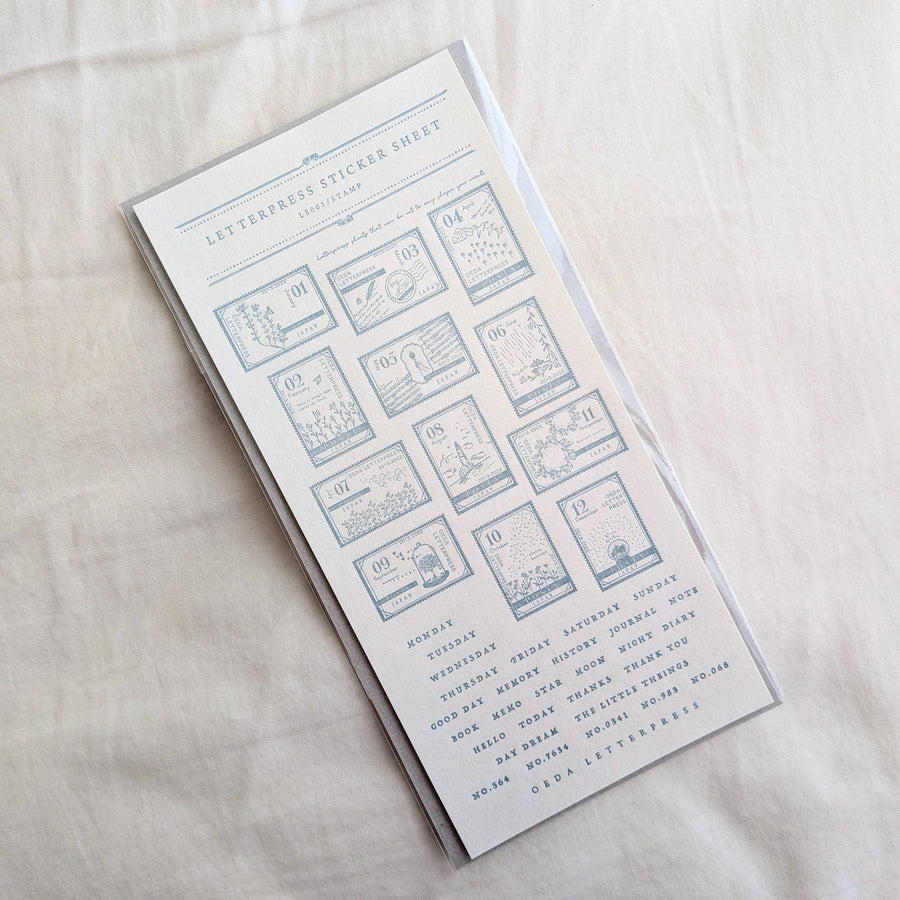 LETTERPRESS STICKER SHEET
LS001/STAMP
Letterpress sheets that can be cut to any shape you want.
01
OEDA LETTERPRESS
JAPAN
03
OEDA LETTERPRESS
JAPAN
04 April
OEDA LETTERPRESS
02
February
OEDA LETTERPRESS
05
JAPAN
06 June
07
OEDA LETTERPRESS
JAPAN
08
August
OEDA LETTERPRESS
11
JAPAN
09
September
OEDA LETTERPRESS
JAPAN
10
October
12
December
OEDA LETTER PRESS
JAPAN
MONDAY
TUESDAY
WEDNESDAY
THURSDAY FRIDAY SATURDAY SUNDAY
GOOD DAY MEMORY HISTORY JOURNAL NOTE
BOOK MEMO STAR MOON NIGHT DIARY
HELLO TODAY THANKS THANK YOU
DAY DREAM THE LITTLE THEINGS
NO.564 NO.7634 NO.0341 NO.983 NO.068
OEDA LETTERPRESS